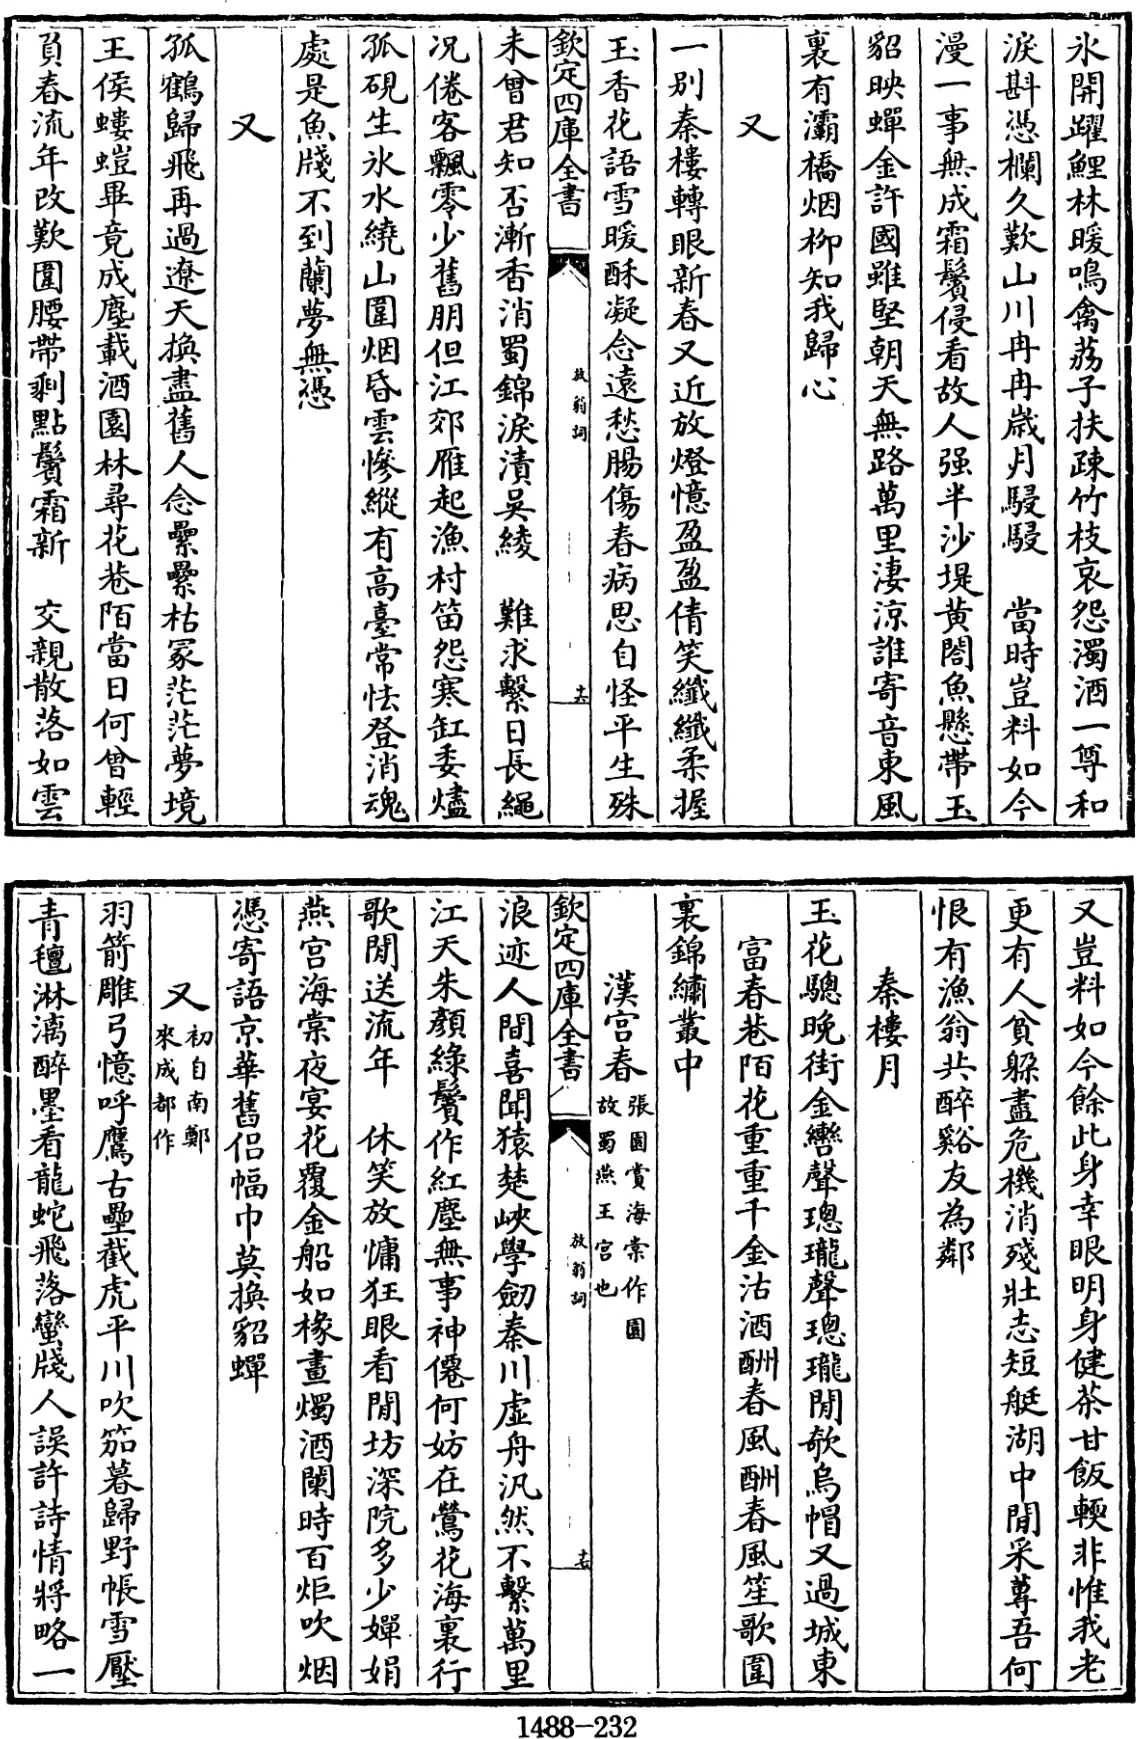 氷開躍鯉林暖鳴禽荔子扶疎竹枝哀怨濁酒一尊和
淚斟憑欄久歎山川冉冉歲月駸駸　當時豈料如今
漫一事無成霜鬢侵看故人强半沙堤黄閤魚懸帶玉
貂映蟬金許國雖堅朝天無路萬里淒涼誰寄音東風
裏有灞橋烟柳知我歸心
又
一别秦樓轉眼新春又近放燈憶盈盈倩笑纎纎柔握
玉香花語雪暖酥凝念遠愁腸傷春病思自怪平生殊
欽定四庫全書
放翁詞
十六
未曾君知否漸香消蜀錦淚漬吳綾　難求繫日長繩
况倦客飄零少舊朋但江郊雁起漁村笛怨寒缸委燼
孤硯生氷水繞山圍烟昏雲慘縱有高臺常怯登消魂
處是魚牋不到蘭夢無憑
又
孤鶴歸飛再過遼天換盡舊人念纍纍枯冢茫茫夢境
王侯螻螘畢竟成塵載酒園林尋花巷陌當日何曾輕
負春流年改歎圍腰帶剩點鬢霜新　交親散落如雲
又豈料如今餘此身幸眼明身健茶甘飯輭非惟我老
更有人貧躲盡危機消殘壯志短艇湖中閒采蓴吾何
恨有漁翁共醉谿友為鄰
秦樓月
玉花驄晚街金轡聲璁瓏聲璁瓏閒欹烏帽又過城東
富春巷陌花重重千金沽酒酬春風酬春風笙歌圍
裏錦繡叢中
漢宮春張園賞海棠作園
故蜀燕王宮也
欽定四庫全書
放翁詞
十七
浪迹人間喜聞猿楚峽學劒秦川虚舟汎然不繫萬里
江天朱顏緑鬢作紅塵無事神僊何妨在鶯花海裏行
歌閒送流年　休笑放慵狂眼看閒坊深院多少嬋娟
燕宮海棠夜宴花覆金船如椽畫燭酒闌時百炬吹烟
憑寄語京華舊侣幅巾莫換貂蟬
又初自南鄭
來成都作
羽箭雕弓憶呼鷹古壘截虎平川吹笳暮歸野帳雪壓
青氊淋漓醉墨看龍蛇飛落蠻牋人誤許詩情將略一
1488-232